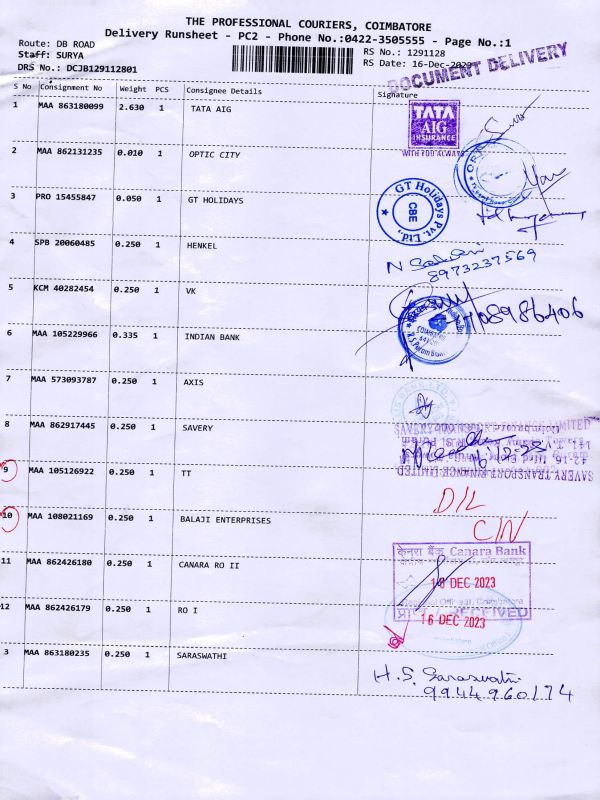 THE PROFESSIONAL COURIERS, COIMBATORE
Delivery Runsheet - PC2 - Phone No.:0422-3505555 - Page No.:1
Route: DB ROAD
Staff: SURYA
DRS No.: DCJB129112801
RS No.: 1291128
RS Date: 16-Dec-2023
DOCUMENT DELIVERY
S No Consignment No Weight PCS Consignee Details Signature
1 MAA 863180099 2.630 1 TATA AIG
TATA
AIG
INSURANCE
WITH YOU ALWAYS
2 MAA 862131235 0.010 1 OPTIC CITY
3 PRO 15455847 0.050 1 GT HOLIDAYS
GT Holidays Pvt. Ltd.,
CBE
4 SPB 20060485 0.250 1 HENKEL
8973237569
5 KCM 40282454 0.250 1 VK
6 MAA 105229966 0.335 1 INDIAN BANK
7 MAA 573093787 0.250 1 AXIS
8 MAA 862917445 0.250 1 SAVERY
SAVERY TRANSPORT FINANCE LIMITED
9 MAA 105126922 0.250 1 TT
D/L
10 MAA 108021169 0.250 1 BALAJI ENTERPRISES
C/N
11 MAA 862426180 0.250 1 CANARA RO II
केनरा बैंक Canara Bank
16 DEC 2023
RECEIVED
12 MAA 862426179 0.250 1 RO I
16 DEC 2023
3 MAA 863180235 0.250 1 SARASWATHI
H.S. Saraswathi
9944960174